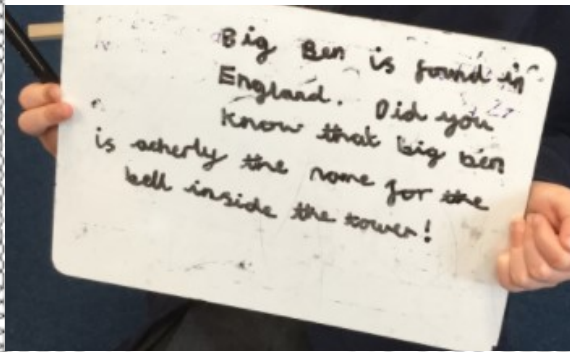 Big Ben is found in
England. Did you
know that big ben
is acherly the name for the
bell inside the tower!